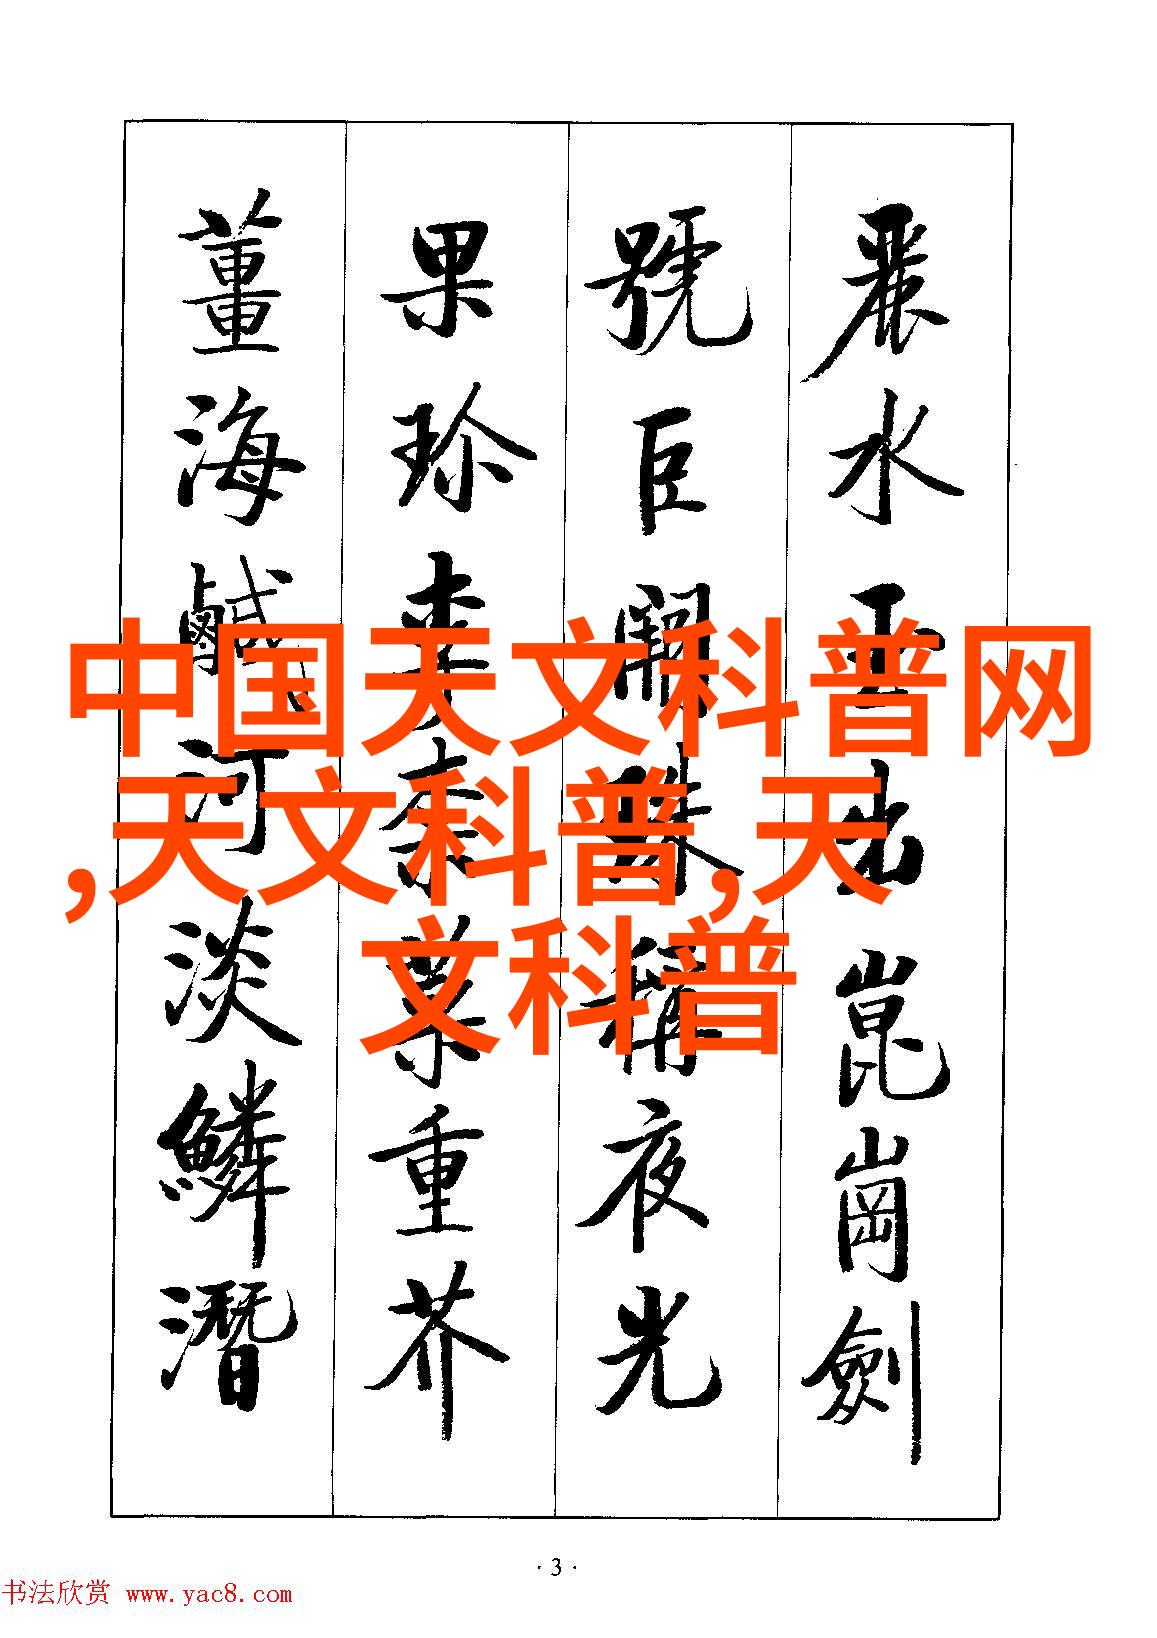 麗水玉出崑崗劍
號巨闕珠稱夜光
果珍李柰菜重芥
薑海鹹河淡鱗潛
中国天文科普网
,天文科普,天
文科普
·3·
书法欣赏 www.yac8.com